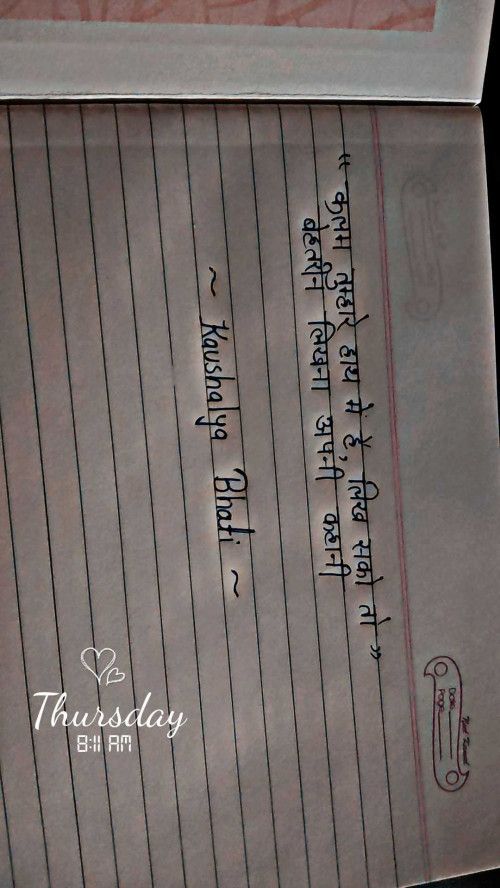 “ कलम तुम्हारे हाथ में है, लिख सको तो ”
बेहतरीन लिखना अपनी कहानी
~ Kaushalya Bhati ~
Date
Page
Thursday
8:11 AM